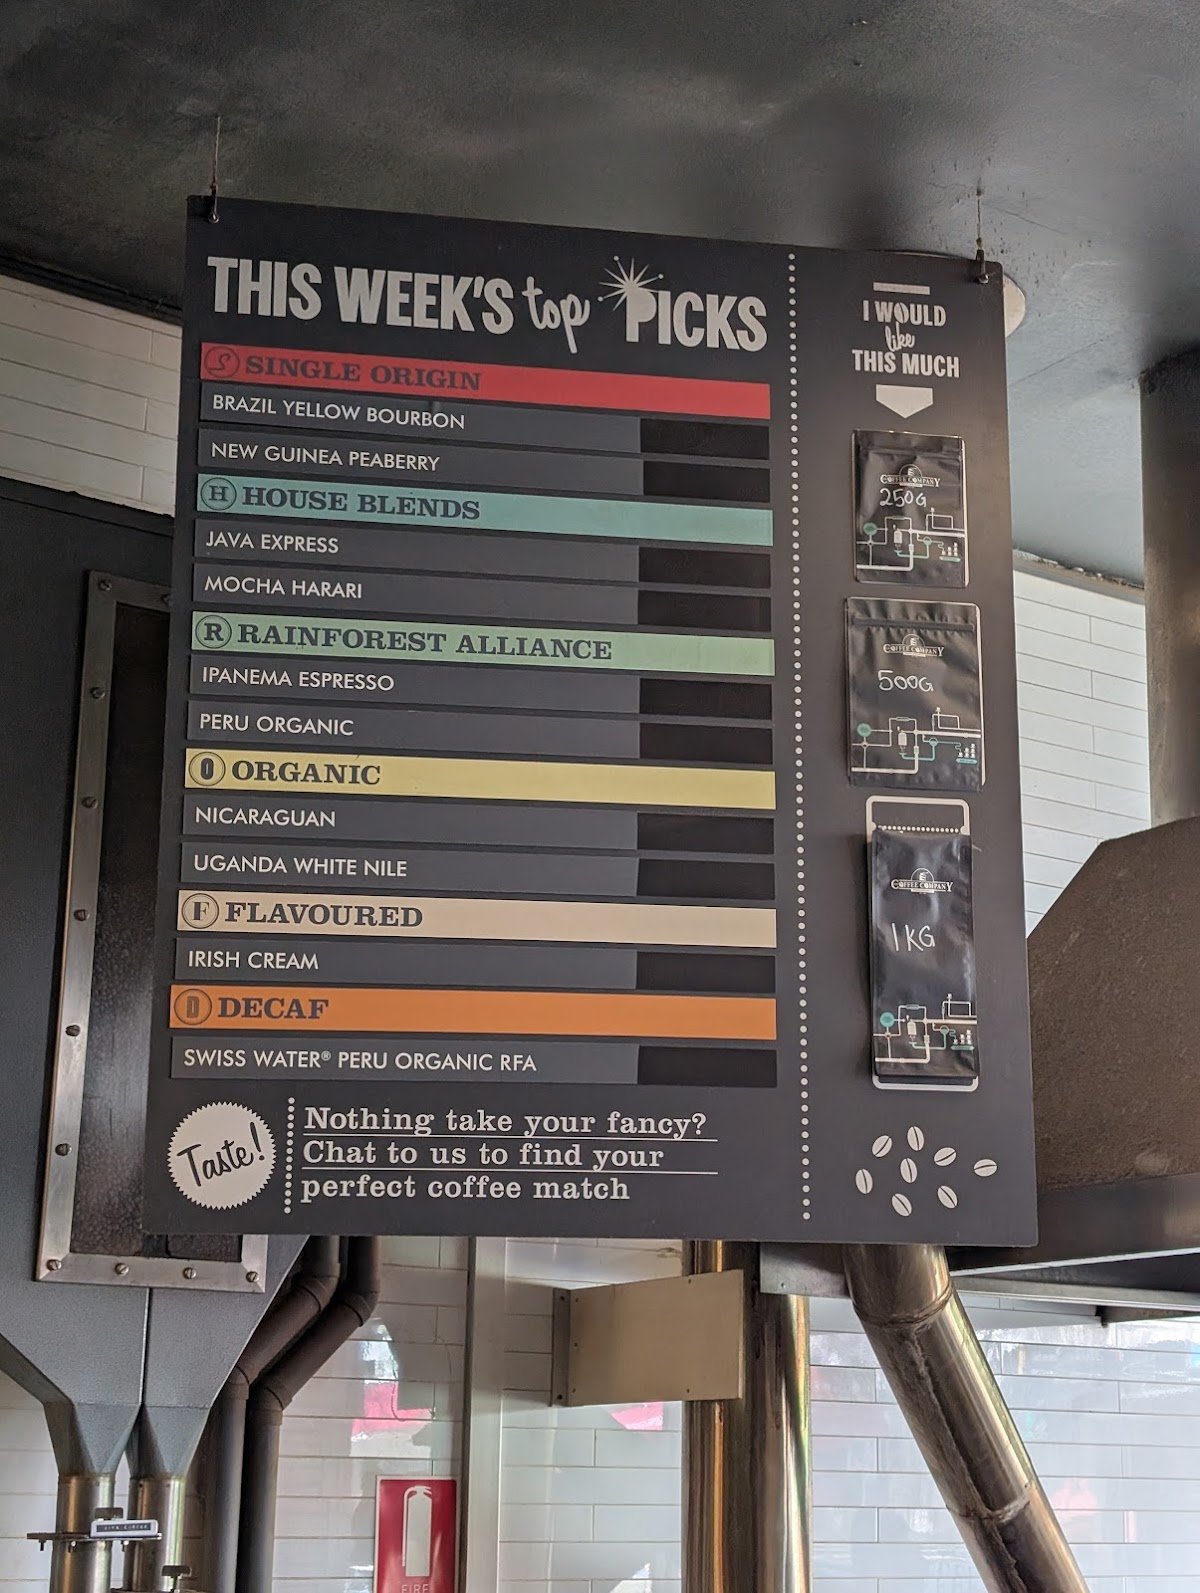 THIS WEEK'S top PICKS
S SINGLE ORIGIN
BRAZIL YELLOW BOURBON
NEW GUINEA PEABERRY
H HOUSE BLENDS
JAVA EXPRESS
MOCHA HARARI
R RAINFOREST ALLIANCE
IPANEMA ESPRESSO
PERU ORGANIC
O ORGANIC
NICARAGUAN
UGANDA WHITE NILE
F FLAVOURED
IRISH CREAM
D DECAF
SWISS WATER® PERU ORGANIC RFA
Taste!
Nothing take your fancy?
Chat to us to find your
perfect coffee match
I WOULD
like
THIS MUCH
COFFEE COMPANY
250G
COFFEE COMPANY
500G
COFFEE COMPANY
1KG
FIRE